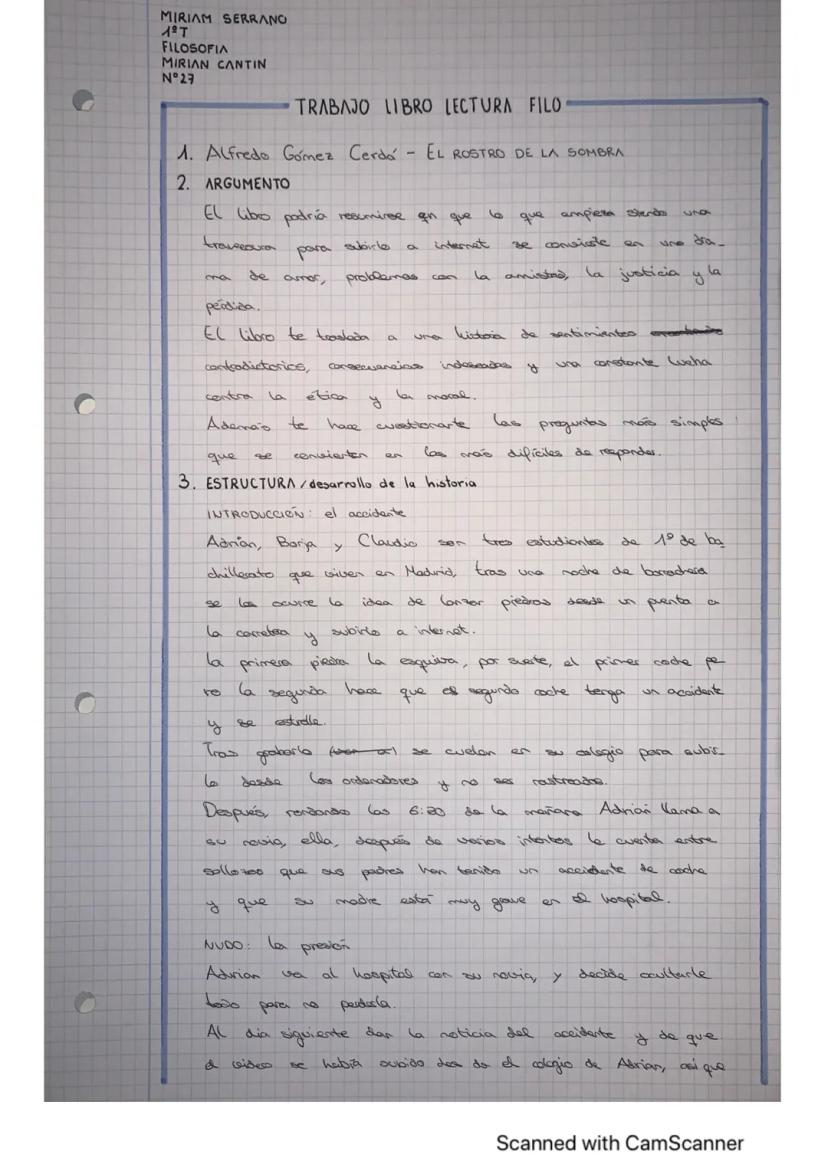 MIRIAM SERRANO
1ºT
FILOSOFIA
MIRIAN CANTIN
Nº27
TRABAJO LIBRO LECTURA FILO
1. Alfredo Gómez Cerdá - EL ROSTRO DE LA SOMBRA
2. ARGUMENTO
El libro podría resumirse en que lo que empieza siendo una
travesura para subirlo a internet se convierte en una dra-
ma de amor, problemas con la amistad, la justicia y la
pérdida.
El libro te traslada a una historia de sentimientos
contradictorios, consecuencias indeseadas y una constante lucha
contra la ética y la moral.
Además te hace cuestionarte las preguntas más simples
que se convierten en las más difíciles de responder.
3. ESTRUCTURA/desarrollo de la historia
INTRODUCCIÓN: el accidente
Adrián, Borja y Claudio son tres estudiantes de 1º de ba
chillerato que viven en Madrid, tras una noche de borrachera
se les ocurre la idea de lanzar piedras desde un puente a
la carretera y subirlo a internet.
La primera piedra la esquiva, por suerte, el primer coche pe
ro la segunda hace que el segundo coche tenga un accidente
y se estrelle.
Tras grabarlo se cuelan en su colegio para subir
lo desde los ordenadores y no ser rastreados.
Después, rondando las 6:30 de la mañana Adrián llama a
su novia, ella, después de varios intentos le cuenta entre
sollozos que sus padres han tenido un accidente de coche
y que su madre está muy grave en el hospital.
NUDO: la presión
Adrian va al hospital con su novia, y decide ocultarle
todo para no perderla.
Al dia siguiente dan la noticia del accidente y de que
el video se había subido des de el colegio de Adrian, así que
Scanned with CamScanner